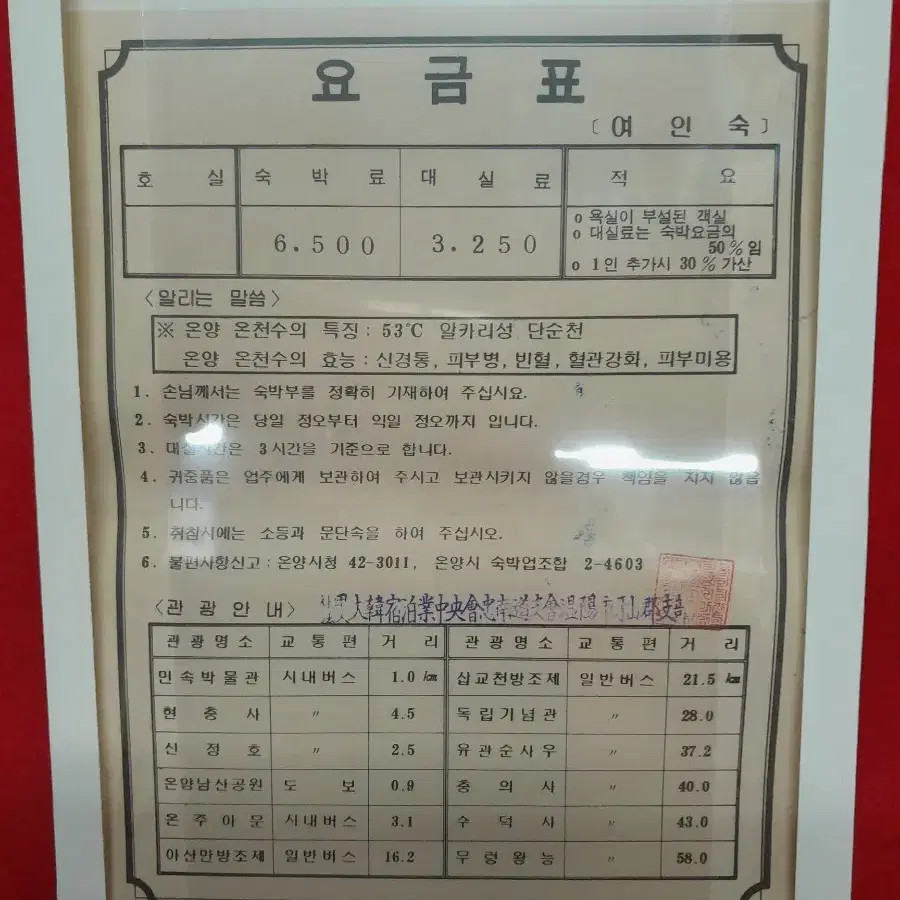 요 금 표
〔여 인 숙〕
호 실 숙 박 료 대 실 료 적 요
6.500 3.250
o 욕실이 부설된 객실
o 대실료는 숙박요금의
50%임
o 1인 추가시 30%가산
〈알리는 말씀〉
※ 온양 온천수의 특징 : 53℃ 알카리성 단순천
온양 온천수의 효능 : 신경통, 피부병, 빈혈, 혈관강화, 피부미용
1. 손님께서는 숙박부를 정확히 기재하여 주십시요.
2. 숙박시간은 당일 정오부터 익일 정오까지 입니다.
3. 대실시간은 3시간을 기준으로 합니다.
4. 귀중품은 업주에게 보관하여 주시고 보관시키지 않을경우 책임을 지지 않습
니다.
5. 취침시에는 소등과 문단속을 하여 주십시오.
6. 불편사항신고 : 온양시청 42-3011, 온양시 숙박업조합 2-4603
〈관 광 안 내〉 大韓宿泊業中央會忠南道支會溫陽
관광명소 교통편 거 리 관광명소 교통편 거 리
민속박물관 시내버스 1.0㎞ 삽교천방조제 일반버스 21.5㎞
현 충 사 〃 4.5 독립기념관 〃 28.0
신 정 호 〃 2.5 유관순사우 〃 37.2
온양남산공원 도 보 0.9 충 의 사 〃 40.0
온주아문 시내버스 3.1 수 덕 사 〃 43.0
아산만방조제 일반버스 16.2 무령왕능 〃 58.0